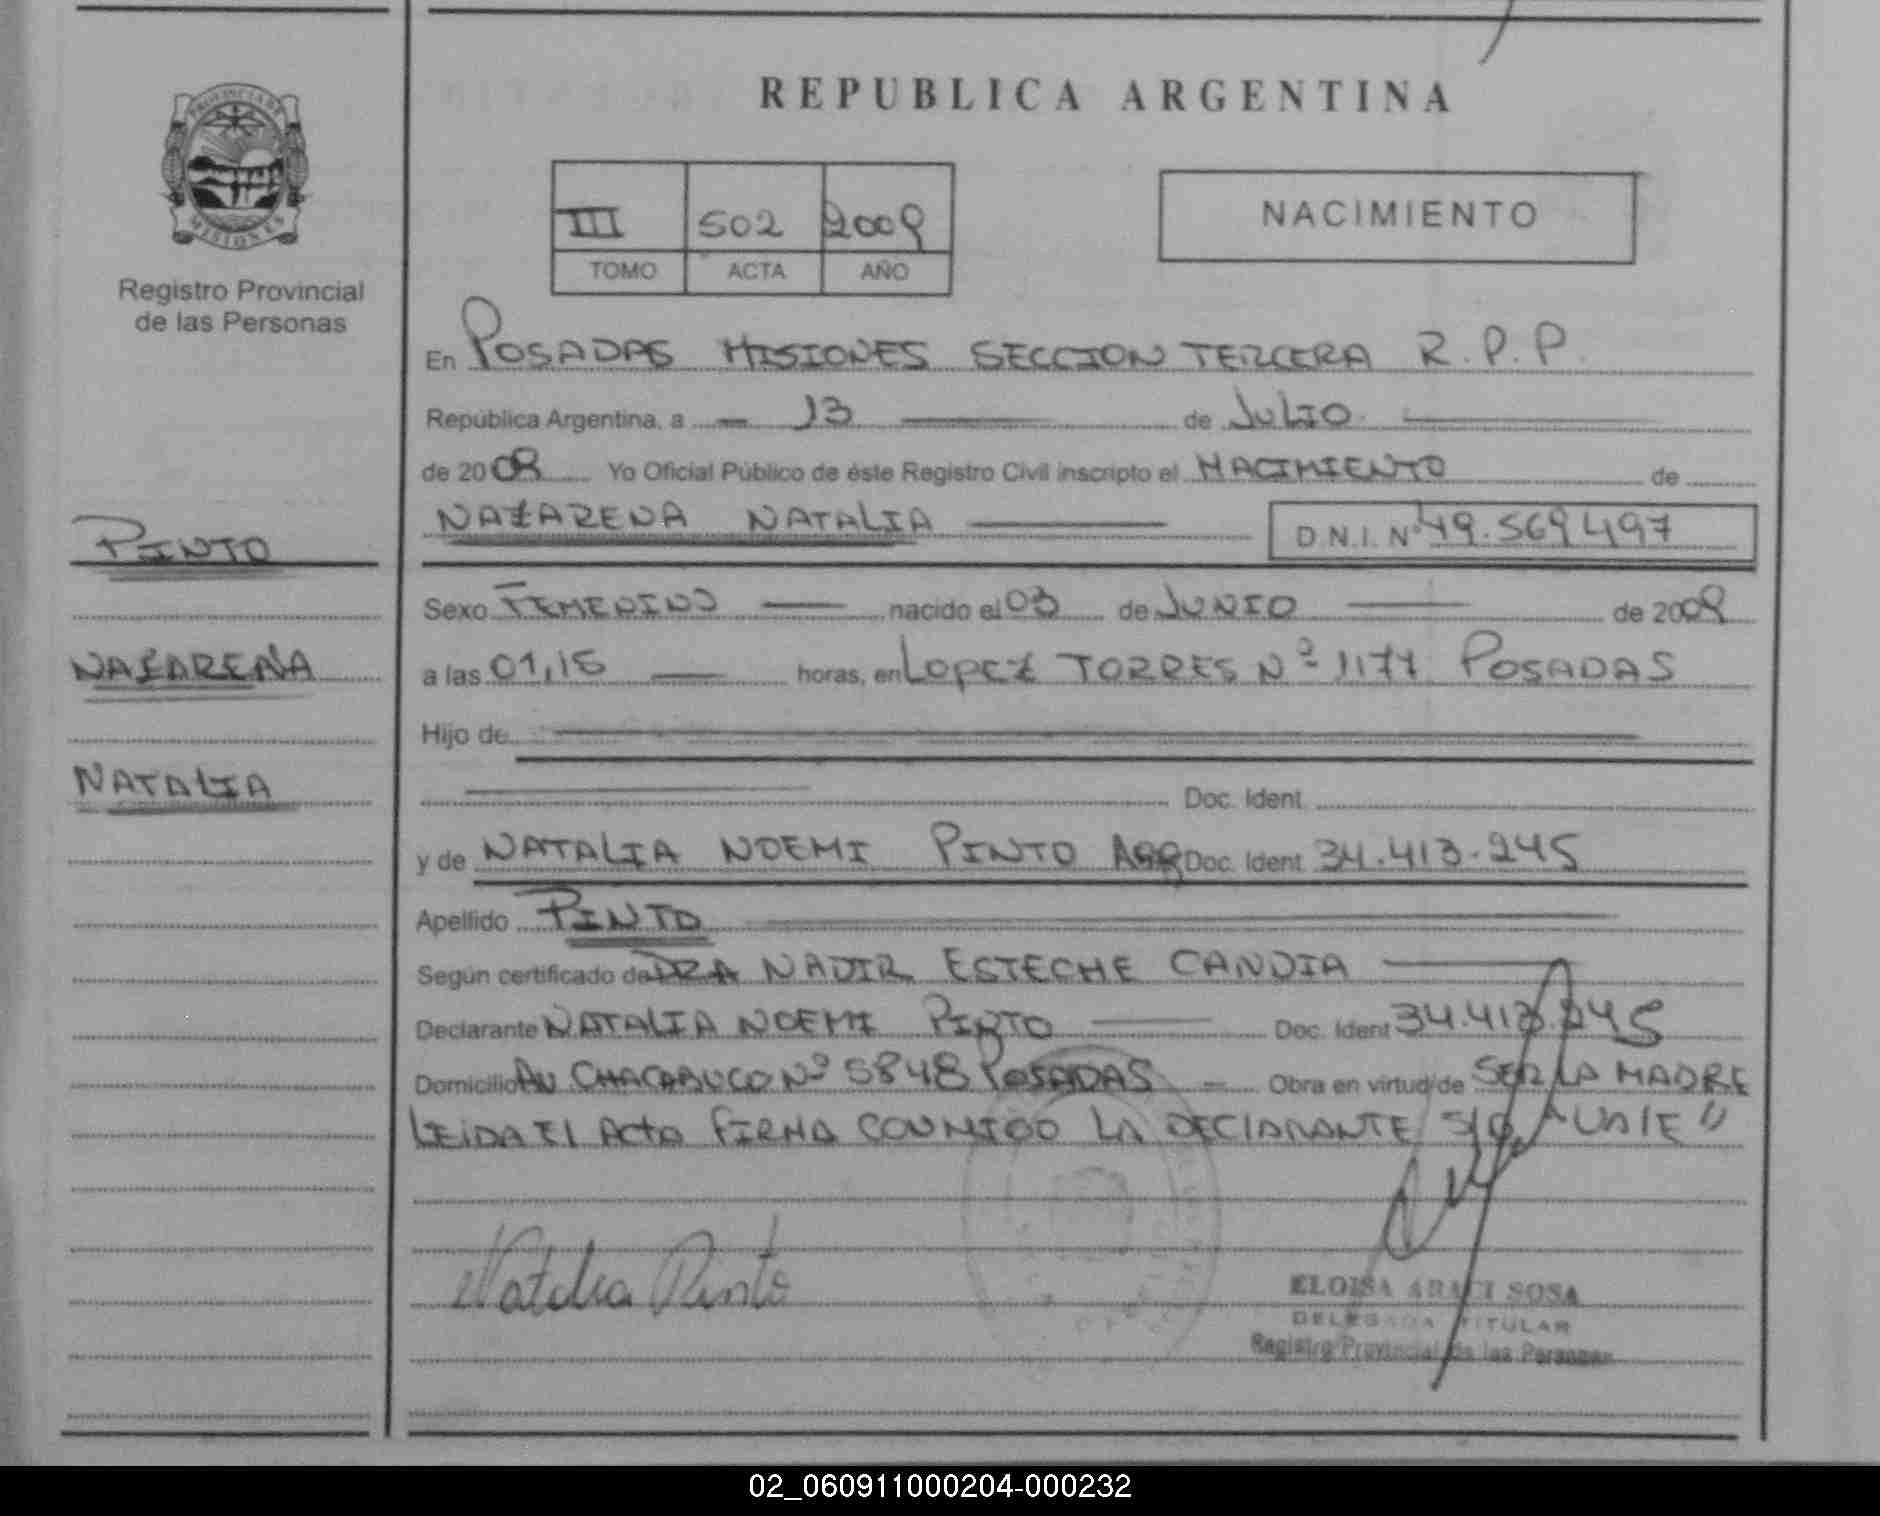 REPUBLICA ARGENTINA
PROVINCIA DE
MISIONES
Registro Provincial
de las Personas
III 502 2009
TOMO ACTA AÑO
NACIMIENTO
En POSADAS MISIONES SECCION TERCERA R.P.P.
República Argentina, a 13 de JULIO
de 2009 Yo Oficial Público de éste Registro Civil inscripto el NACIMIENTO de
NAZARENA NATALIA D.N.I. Nº 49.569497
PINTO
Sexo FEMENINO nacido el 03 de JUNIO de 2009
NAZARENA
a las 01,15 horas, en LOPEZ TORRES Nº 1177 POSADAS
Hijo de
NATALIA
Doc. Ident.
y de NATALIA NOEMI PINTO ARG Doc. Ident. 34.413.245
Apellido PINTO
Según certificado de DRA NADIR ESTECHE CANDIA
Declarante NATALIA NOEMI PINTO Doc. Ident 34.413.245
Domicilio AV CHACABUCO Nº 5848 POSADAS Obra en virtud de SER LA MADRE
LEIDA EL ACTA FIRMA CONMIGO LA DECLARANTE S/R "VALE"
Natalia Pinto
ELOISA ARACI SOSA
DELEGADA TITULAR
Registro Provincial de las Personas
02_060911000204-000232